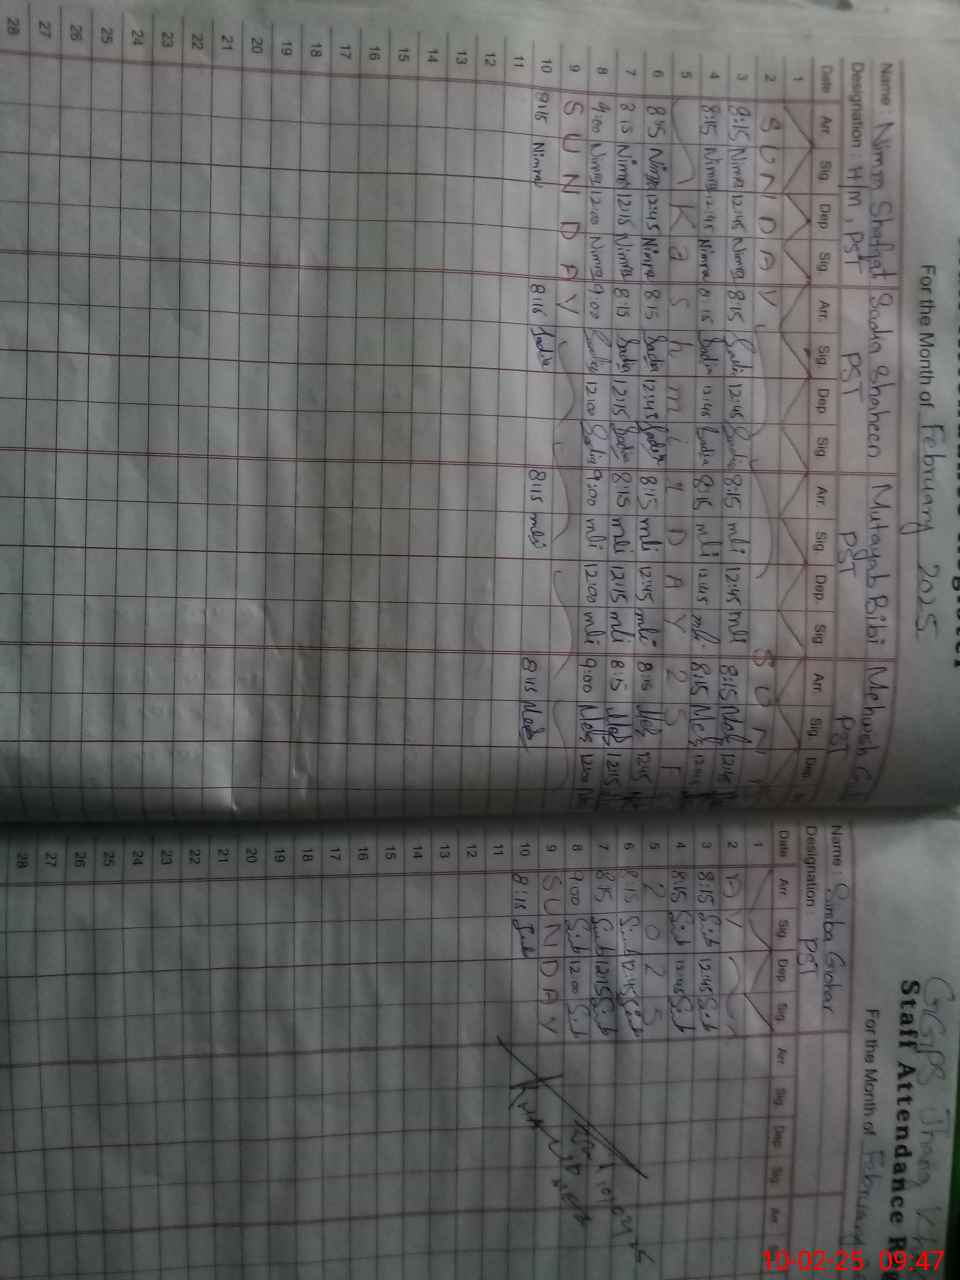 For the Month of February 2025
Name : Nimra Shafqat Sadia Shaheen Mutayab Bibi Mehwish
Designation : H/M, PST PST PST PST
Date Arr. Sig. Dep Sig. Arr. Sig. Dep Sig. Arr. Sig. Dep. Sig. Arr. Sig. Dep.
1
2 S U N D A Y S U N
3 8:15 Nimra 12:45 Nimra 8:15 Sadia 12:45 Sadia 8:15 mbi 12:45 mbi 8:15 Meh 12:45
4 8:15 Nimra 12:45 Nimra 8:15 Sadia 12:45 Sadia 8:15 mbi 12:45 mbi 8:15 Meh 12:45
5 K a s h m i r D A Y
6 8:15 Nimra 12:45 Nimra 8:15 Sadia 12:45 Sadia 8:15 mbi 12:45 mbi 8:15 Meh 12:45
7 8:15 Nimra 12:15 Nimra 8:15 Sadia 12:15 Sadia 8:15 mbi 12:15 mbi 8:15 Meh 12:15
8 9:00 Nimra 12:00 Nimra 9:00 Sadia 12:00 Sadia 9:00 mbi 12:00 mbi 9:00 Meh 12:00
9 S U N D A Y
10 8:15 Nimra 8:15 Sadia 8:15 mbi 8:15 Meh
11
12
13
14
15
16
17
18
19
20
21
22
23
24
25
26
27
28
GGPS Jhang
Staff Attendance R
For the Month of February
Name : Simba Gohar
Designation : PST
Date Arr Sig. Dep Sig. Arr Sig. Dep Sig. Arr
1
2 A Y
3 8:15 Sib 12:45 Sib
4 8:15 Sib 12:45 Sib
5 2 0 2 5
6 8:15 Sib 12:45 Sib
7 8:15 Sib 12:15 Sib
8 9:00 Sib 12:00 Sib
9 S U N D A Y
10 8:15 Sib
11
12
13
14
15
16
17
18
19
20
21
22
23
24
25
26
27
28
10-02-25 09:47